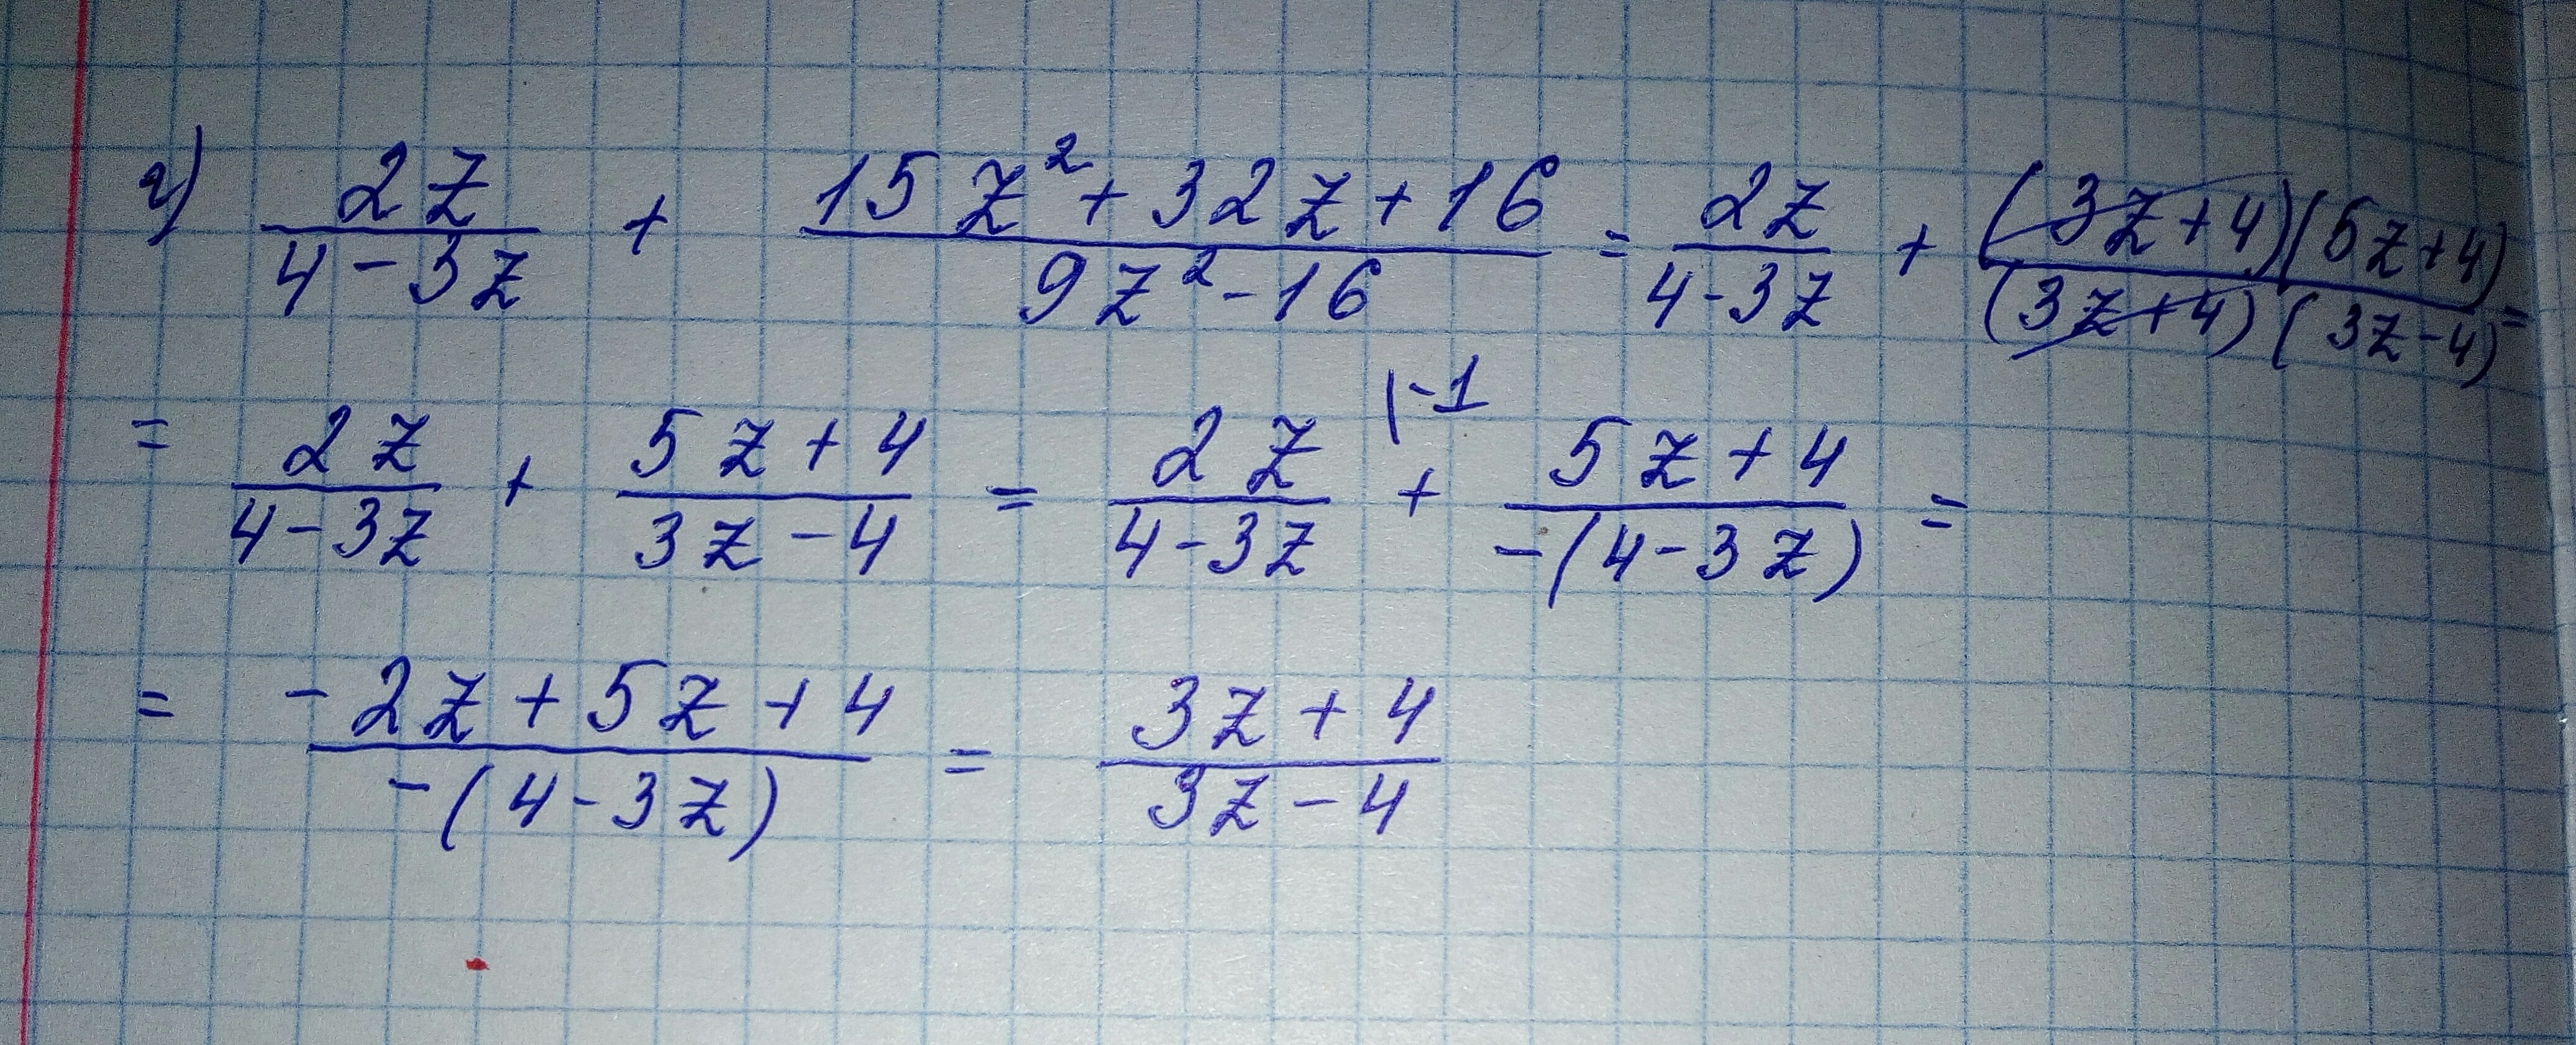 г) \frac{2z}{4-3z} + \frac{15z^2+32z+16}{9z^2-16} = \frac{2z}{4-3z} + \frac{(3z+4)(5z+4)}{(3z+4)(3z-4)} =
= \frac{2z}{4-3z} + \frac{5z+4}{3z-4} = \frac{2z}{4-3z}^{(-1} + \frac{5z+4}{-(4-3z)} =
= \frac{-2z+5z+4}{-(4-3z)} = \frac{3z+4}{3z-4}